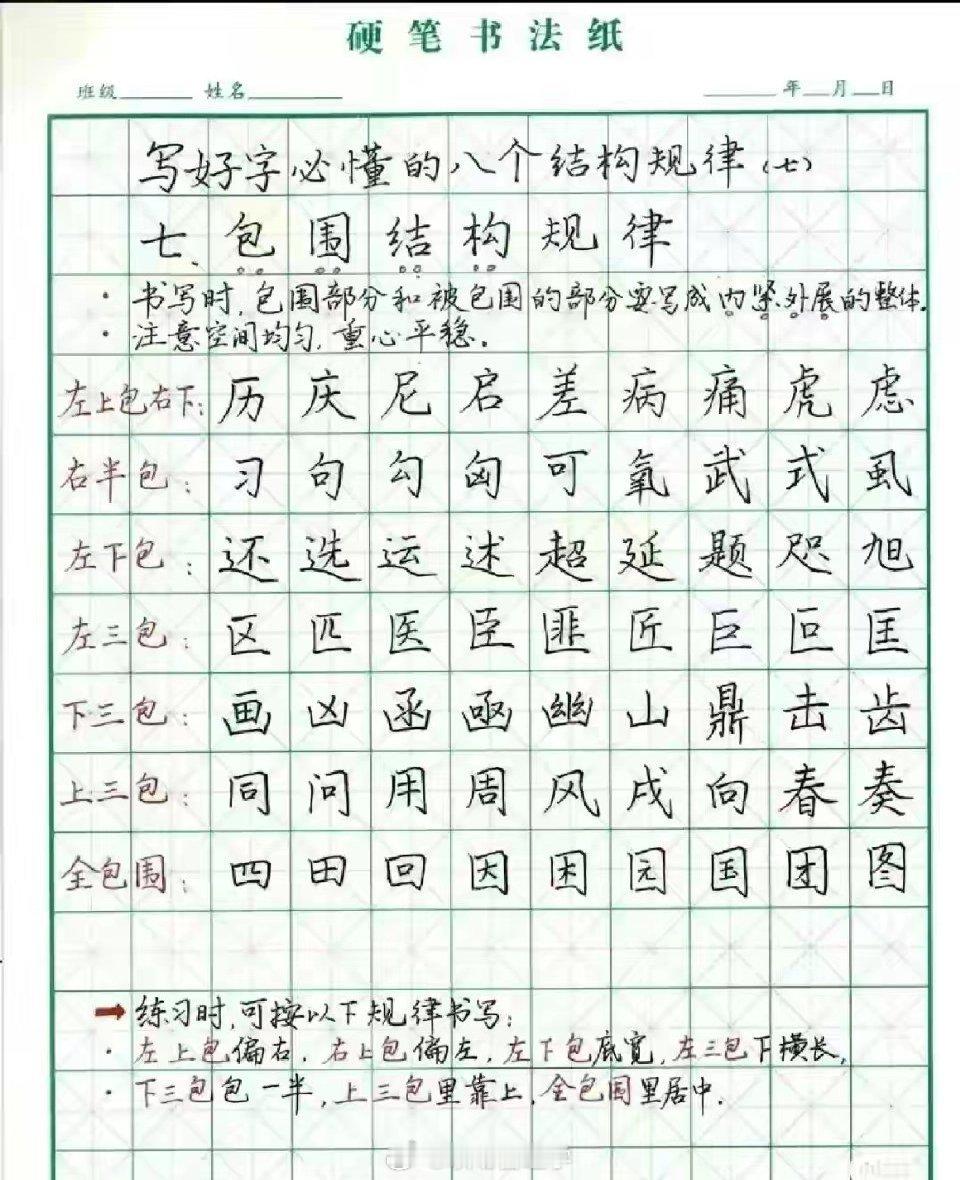 硬笔书法纸
班级______ 姓名________ ______年__月__日
写好字必懂的八个结构规律(七)
七、包围结构规律
·书写时,包围部分和被包围的部分要写成内紧外展的整体.
·注意空间均匀,重心平稳.
左上包右下:历庆尼启差病痛虎虑
右半包:习句勾匈可氧武式虱
左下包:还选运述超延题咫旭
左三包:区匹医臣匪匠巨叵匡
下三包:画凶函亟幽山鼎击齿
上三包:同问用周风戌向春奏
全包围:四田回因困园国团图
➡练习时,可按以下规律书写:
·左上包偏右,右上包偏左,左下包底宽,左三包下横长,
·下三包包一半,上三包里靠上,全包围里居中.